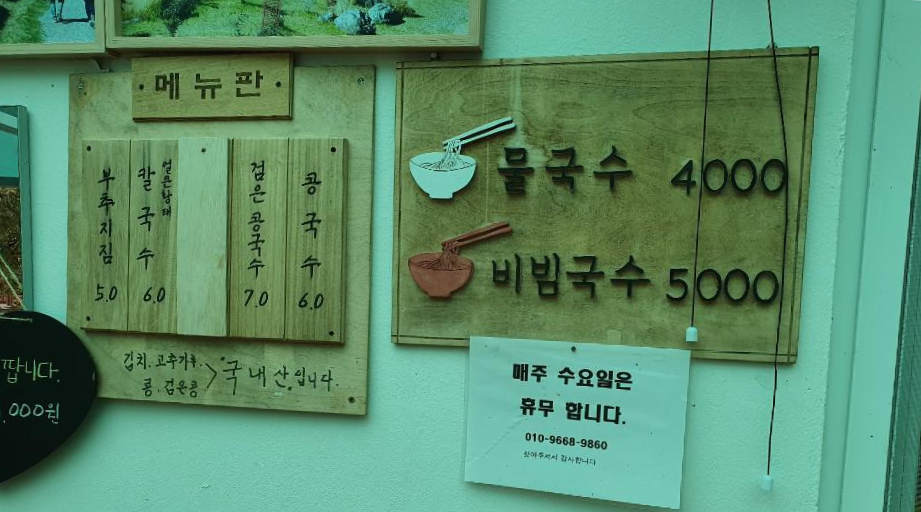 메뉴판
부추지짐
5.0
얼큰황태
칼국수
6.0
검은콩국수
7.0
콩국수
6.0
김치.고추가루
콩.검은콩
> 국내산입니다.
물국수 4000
비빔국수 5000
매주 수요일은
휴무 합니다.
010-9668-9860
찾아주셔서 감사합니다
땁니다.
,000원